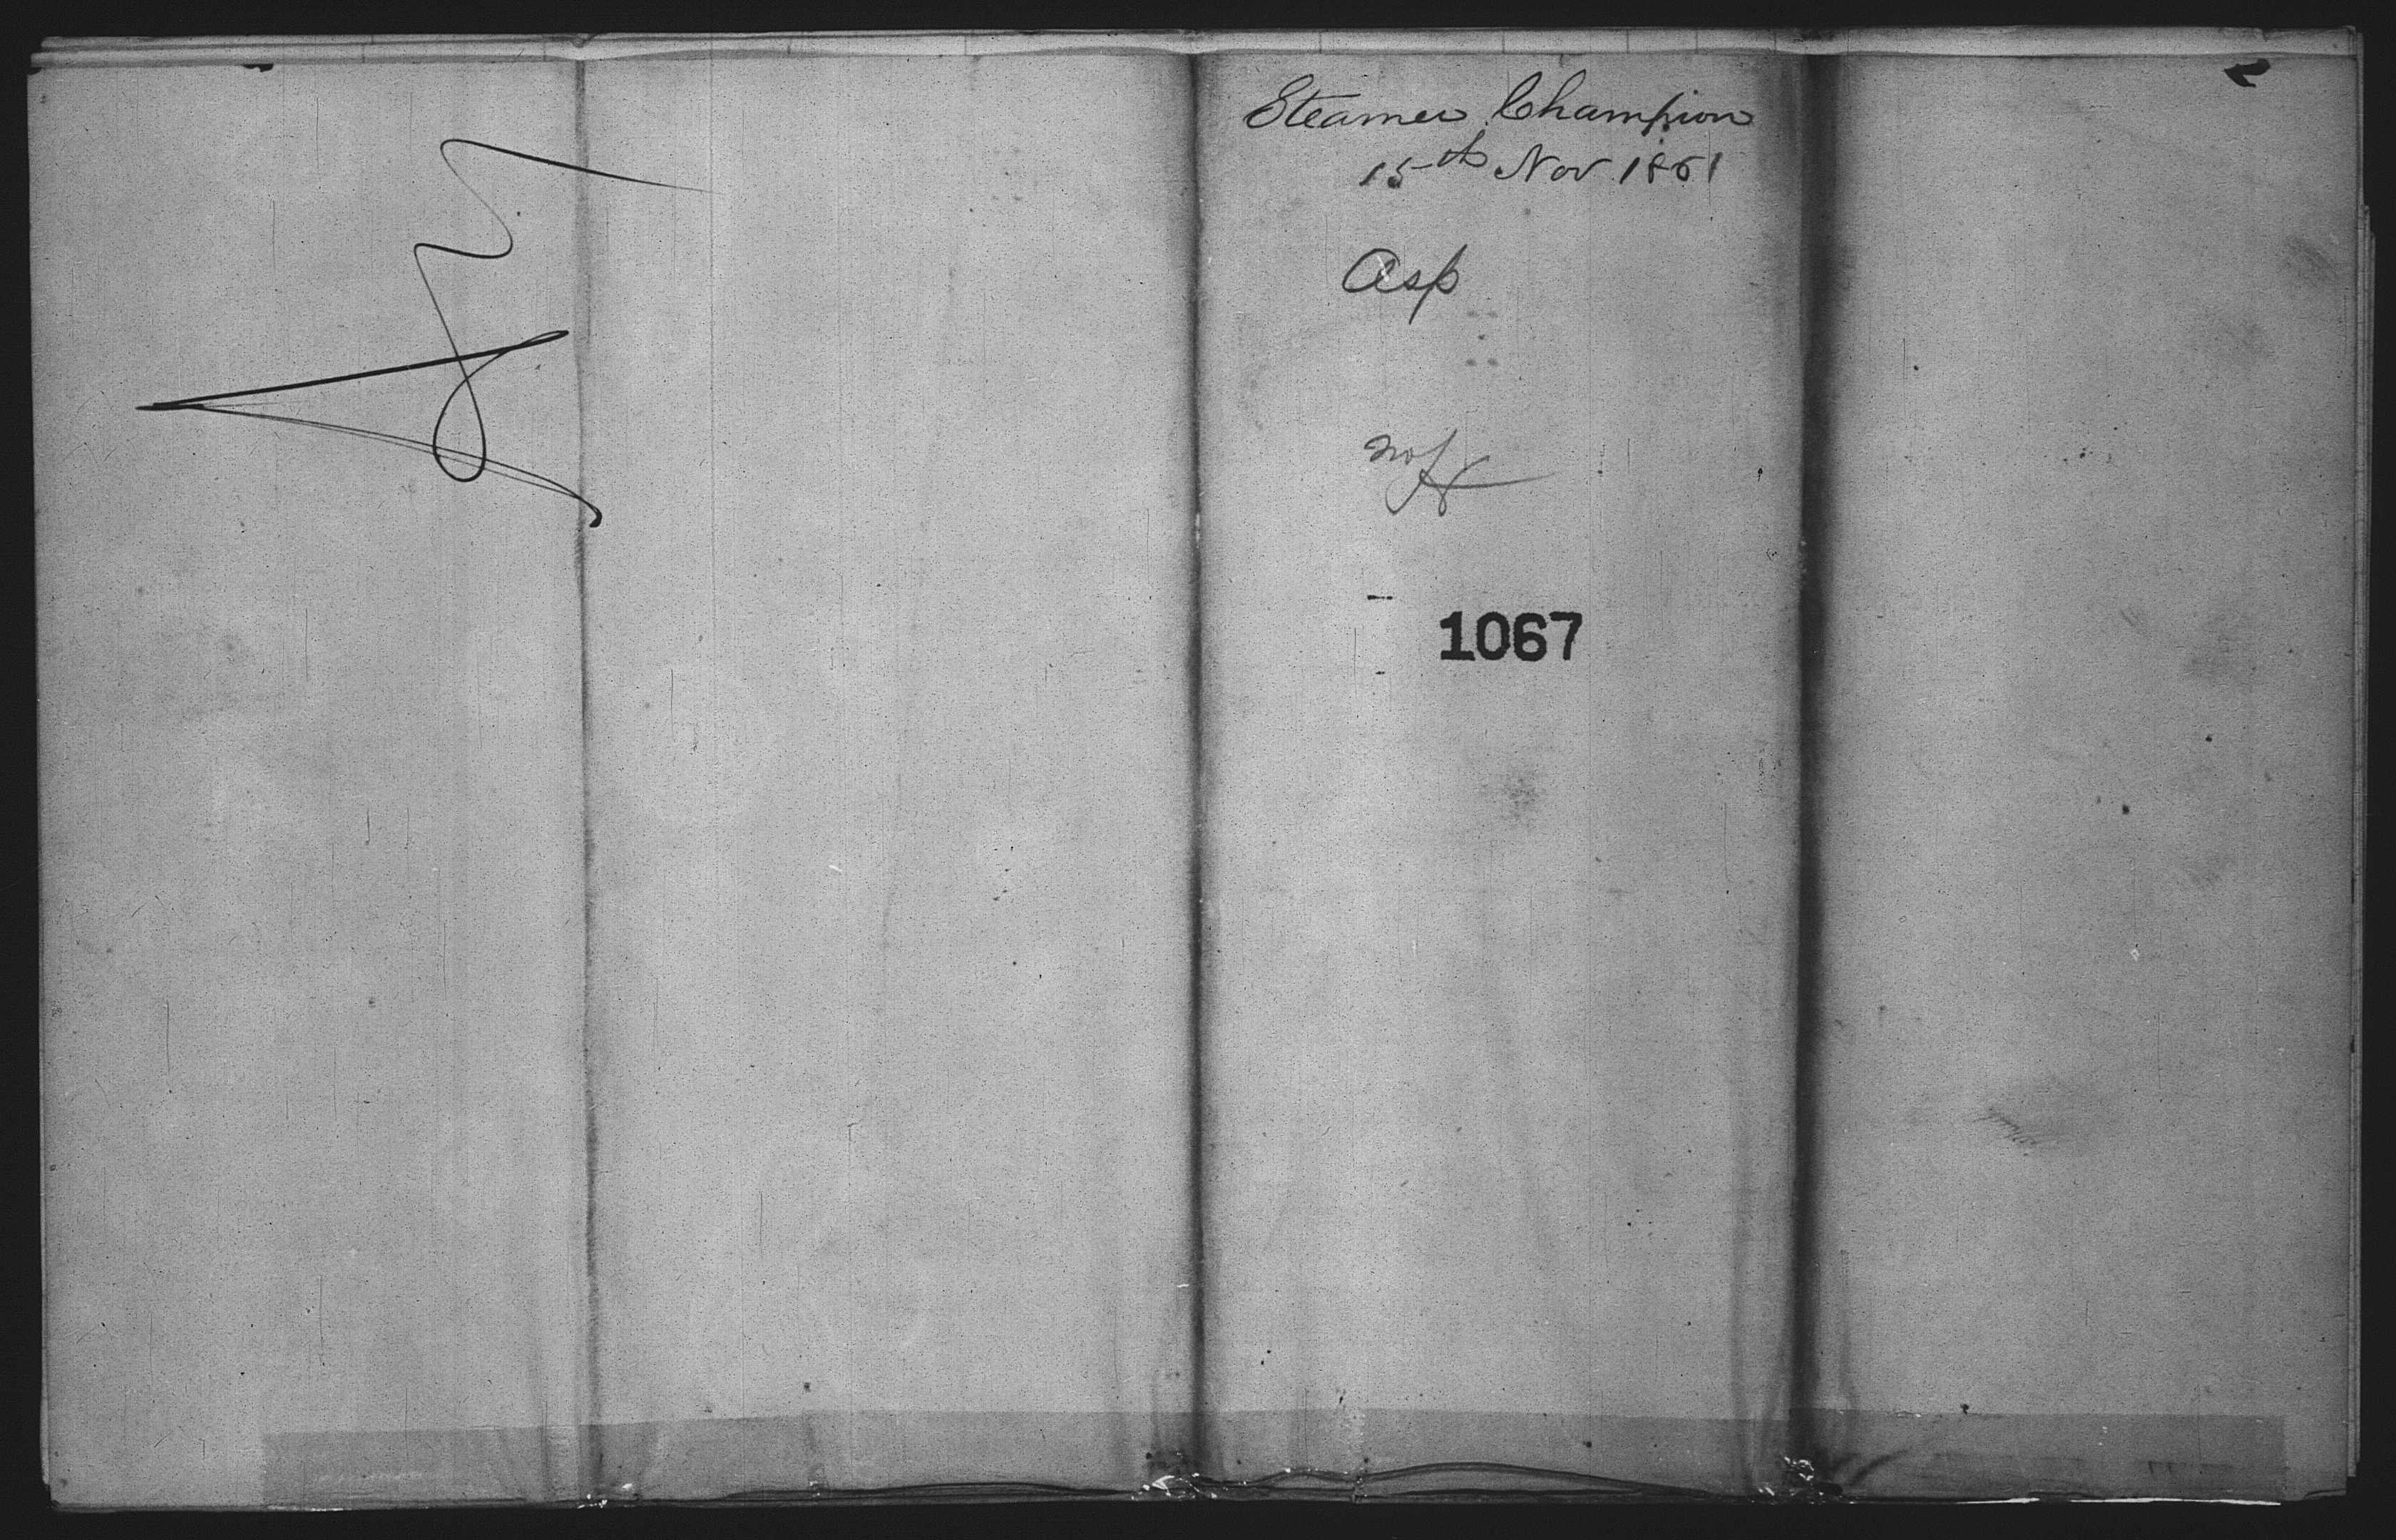 Steamer Champion
15th Nov 1861
Asp
1067